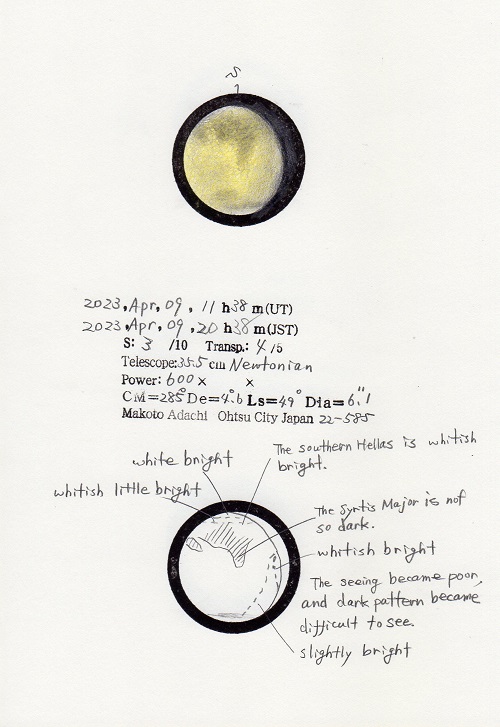 S
2023, Apr, 09, 11 h 38 m (UT)
2023, Apr, 09, 20 h 38 m (JST)
S: 3 /10 Transp.: 4 /5
Telescope: 35.5 cm Newtonian
Power: 600 × ×
CM=285° De=4.°6 Ls=49° Dia=6."1
Makoto Adachi Ohtsu City Japan 22-585
The southern Hellas is whitish
bright.
white bright
whitish little bright
The Syrtis Major is not
so dark.
whitish bright
The seeing became poor,
and dark pattern became
difficult to see.
slightly bright